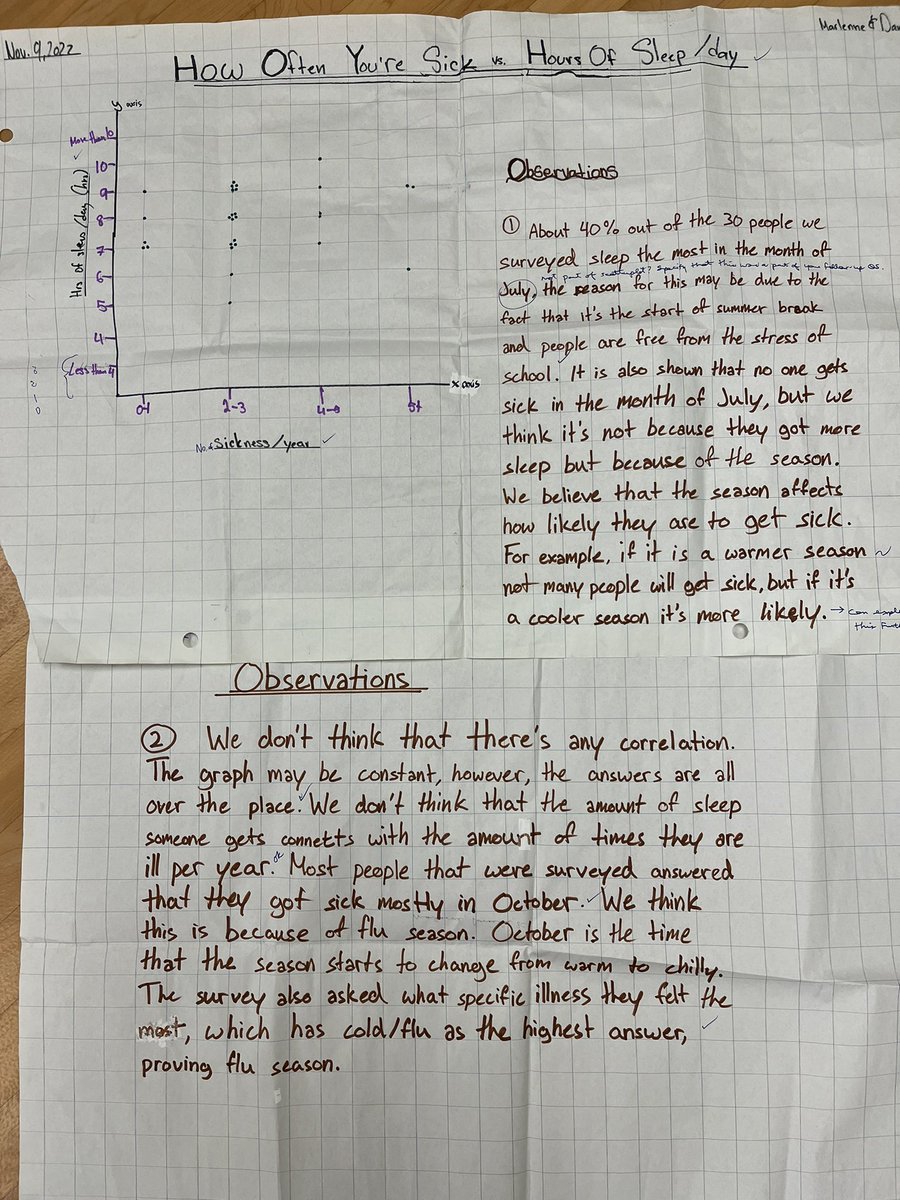 Nov. 9, 2022
Marlenne & Dav
How Often You're Sick vs. Hours Of Sleep/day
y axis
More than 10
10
9
8
7
6
5
4
Less than 4
3
2
1
0
Hrs of sleep/day (hrs)
x axis
0-1
2-3
4-5
5+
No. of Sickness/year
Observations
① About 40% out of the 30 people we
surveyed sleep the most in the month of
not part of scatterplot? Specify that this was a part of your follow-up QS.
July, the reason for this may be due to the
fact that it's the start of summer break
and people are free from the stress of
school. It is also shown that no one gets
sick in the month of July, but we
think it's not because they got more
sleep but because of the season.
We believe that the season affects
how likely they are to get sick.
For example, if it is a warmer season
not many people will get sick, but if it's
a cooler season it's more likely.
→ can
this
Observations
② We don't think that there's any correlation.
The graph may be constant, however, the answers are all
over the place. We don't think that the amount of sleep
someone gets connetts with the amount of times they are
ill per year. Most people that were surveyed answered
that they got sick mostly in October. We think
this is because of flu season. October is the time
that the season starts to change from warm to chilly.
The survey also asked what specific illness they felt the
most, which has cold/flu as the highest answer,
proving flu season.